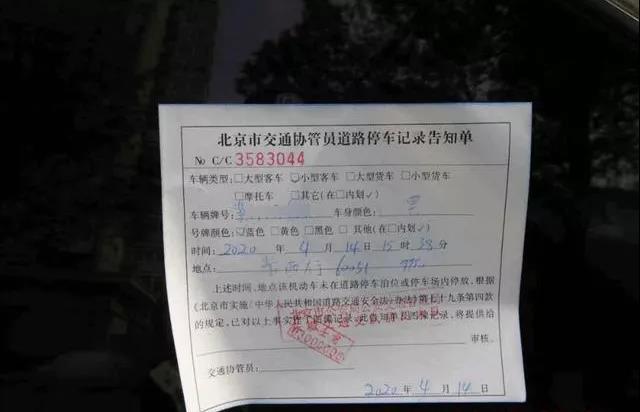 北京市交通协管员道路停车记录告知单
No C/C 3583044
车辆类型:□大型客车 □小型客车 □大型货车 □小型货车
□摩托车 □其它(在□内划✓)
车辆牌号: 车身颜色:
号牌颜色:□蓝色 □黄色 □黑色 □其他(在□内划✓)
时间:2020 年 4 月 14 日 15 时 38 分
地点:
上述时间、地点该机动车未在道路停车泊位或停车场内停放,根据
《北京市实施〈中华人民共和国道路交通安全法〉办法》第七十九条第四款
的规定,已对以上事实作了图像记录,此告知单及图像记录,将提供给
审核。
交通协管员:
2020 年 4 月 14 日